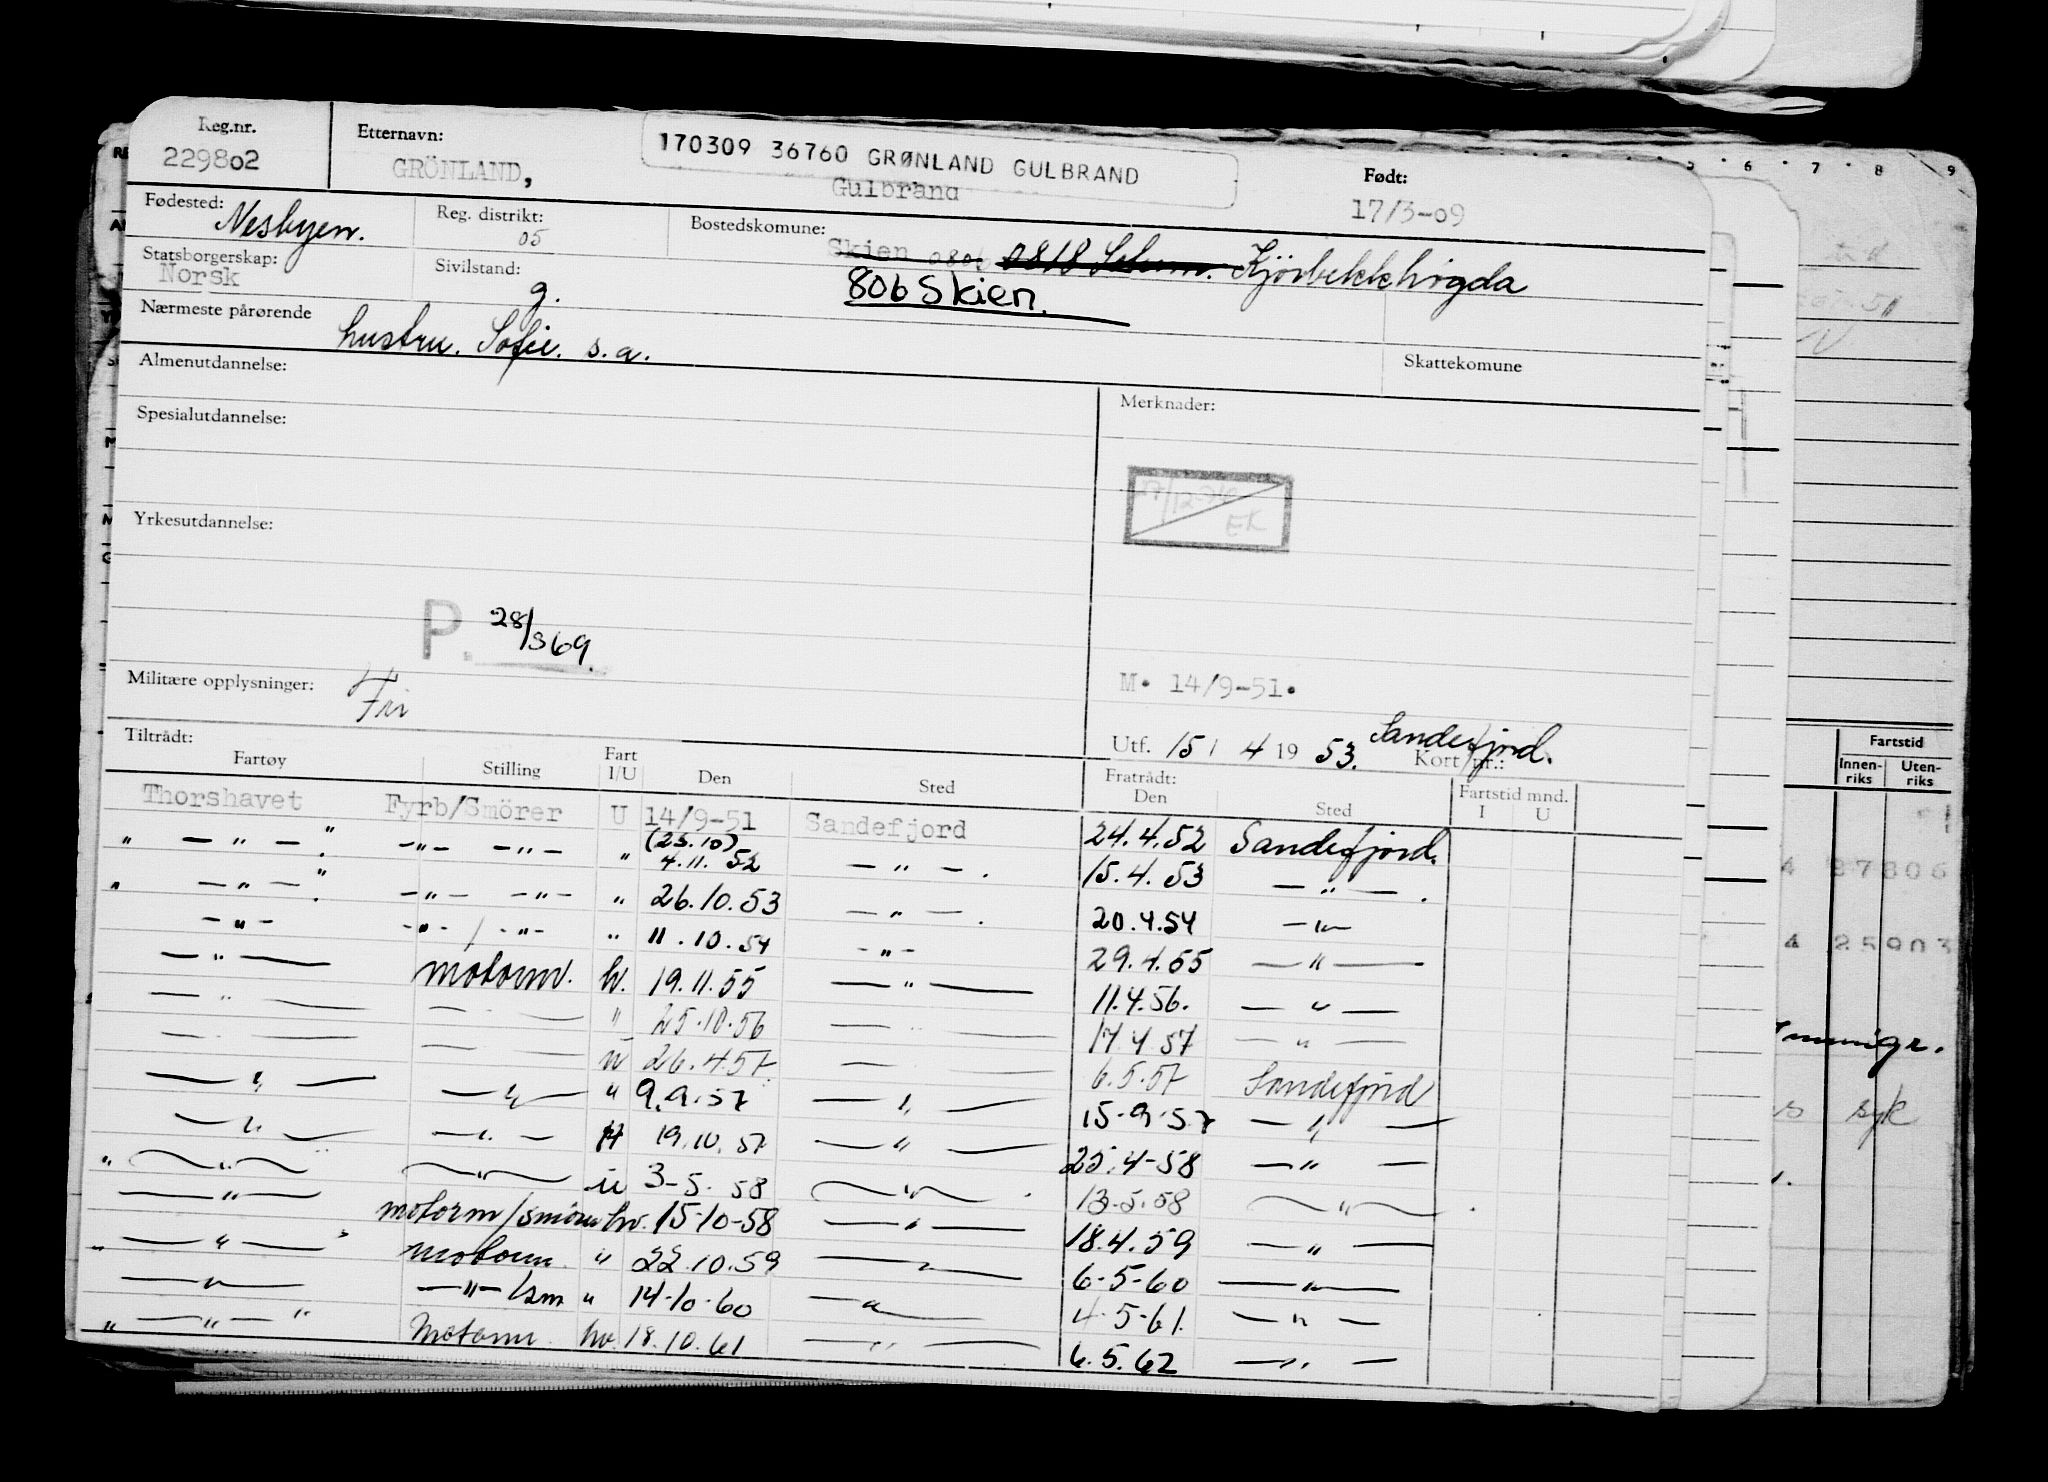 Reg.nr.
229802
Etternavn:
GRÖNLAND,
170309 36760 GRØNLAND GULBRAND
Gulbrand
Født:
17/3-09
Fødested: Nesbyen.
Reg. distrikt:
05
Bostedskomune:
Skien 0806 0818 Solum. Kjörbekkhögda
806 Skien.
Statsborgerskap:
Norsk
Sivilstand:
g.
Nærmeste pårørende
hustru. Sofie. s.a.
Skattekomune
Almenutdannelse:
Merknader:
Spesialutdannelse:
EK
Yrkesutdannelse:
P. 28/369.
Militære opplysninger: Fri
M. 14/9-51.
Utf. 15 / 4 1953. Sandefjord.
Kort nr.:
Tiltrådt:
Fartøy Stilling Fart I/U Den Sted
Fratrådt: Den Sted Fartstid mnd. I U
Thorshavet Fyrb/Smörer U 14/9-51 Sandefjord 24.4.52 Sandefjord.
" — " — " -"- -"- " (25.10) 4.11.52 — " — . 15.4.53 — " — .
" — " — " -"- -"- " 26.10.53 — " — . 20.4.54 -"-
-"- -"- / -"- " 11.10.54 -"- 29.4.55 — " —
— " — motorm. hv. 19.11.55 — " — 11.4.56. — " —
— " — — " — " 25.10.56 — " — 17.4.57 — " —
— " — — " — u 26.4.57 — " — 6.5.57 Sandefjord
— " — — " — " 9.9.57 — " — 15-9-57 — " —
— " — — " — H 19.10.57 — " — 25.4-58 — " —
" — " — — " — u 3-5.58 — " — . 13.5.58 — " — .
— " — motorm/smörer hv. 15-10-58 — " — 18.4.59 — " —
" — " — " motorm. " 22.10.59 — " — 6-5-60 — " —
— " — — " — /sm " 14-10-60 — " — 4-5-61. — " —
" — " — " Motorm. hv. 18.10.61 — " — 6.5.62 — " —
5 6 7 8 9
Fartstid
Innenriks Utenriks
4 27806
4 25903
syk